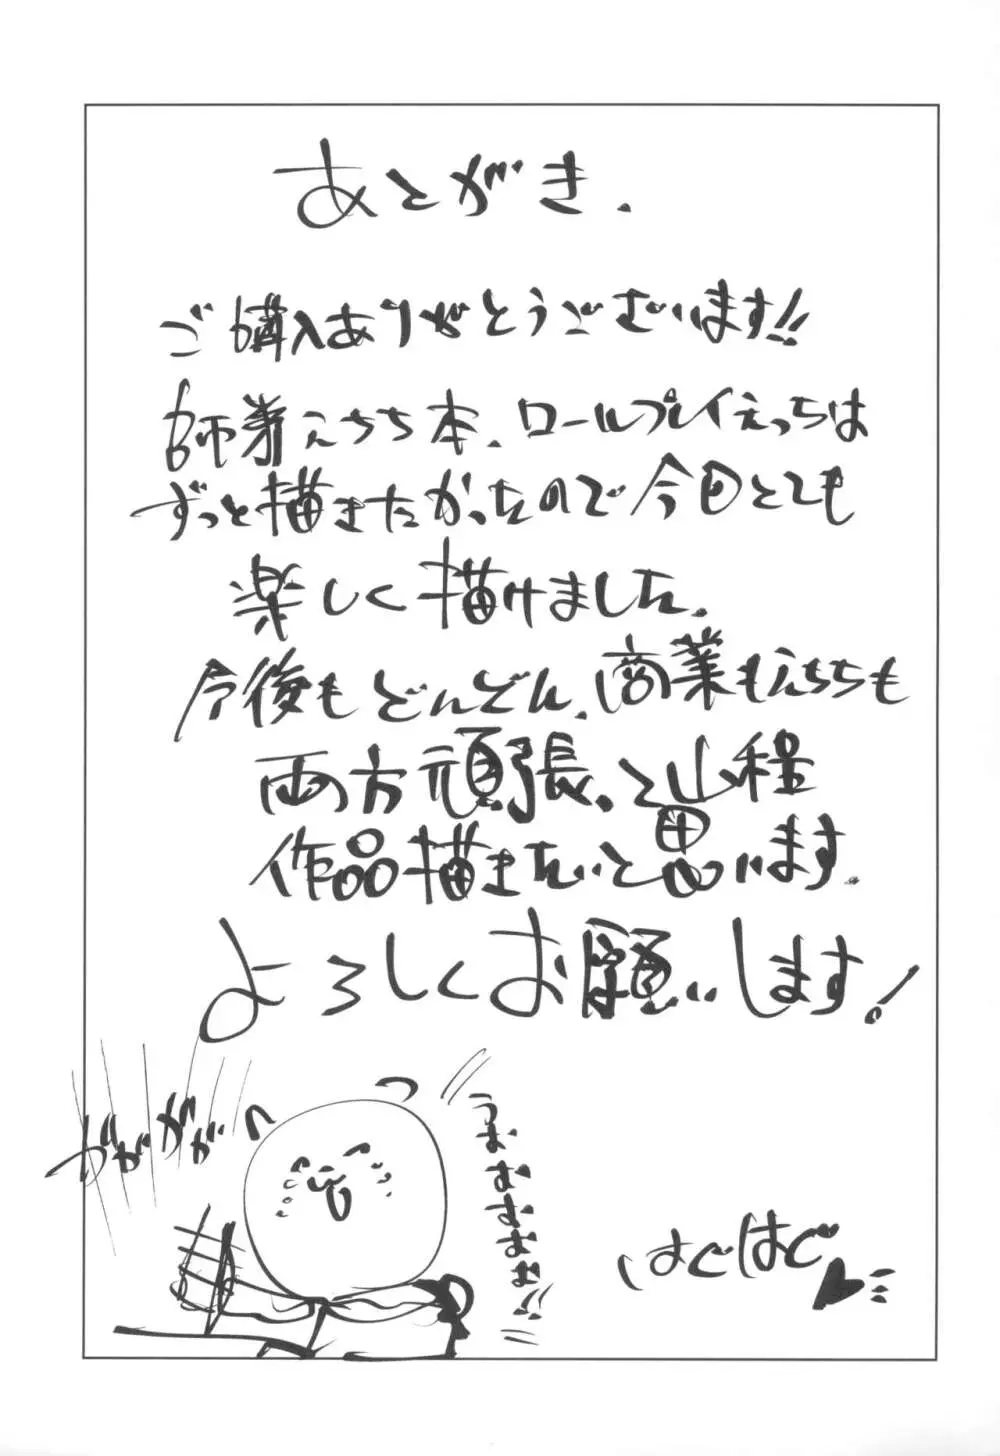 あとがき.
ご購入ありがとうございます!!
師弟えちち本、ロールプレイえっちは
ずっと描きたかったので今回とても
楽しく描けました。
今後もどんどん、商業もえちちも
両方頑張、と出程
作品描きたいと思います。
よろしくお願いします!
ががガガ
うおおおおお!!
はぐはぐ